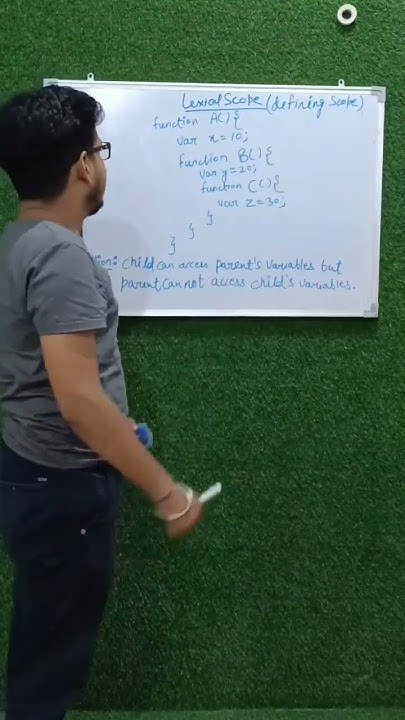 Lexical Scope (defining scope)
function A() {
var x=10;
function B() {
var y=20;
function C() {
var z=30;
}
}
}
tion: child can access parent's variables but
parent cannot access child's variables.